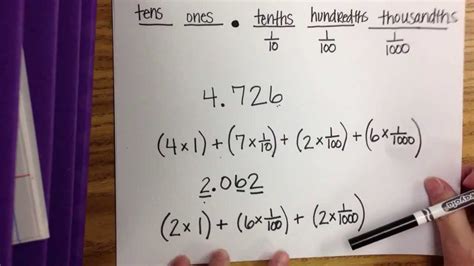 tens ones . tenths hundredths thousandths
1/10 1/100 1/1000
4.726
(4×1) + (7×1/10) + (2×1/100) + (6×1/1000)
2.062
(2×1) + (6×1/100) + (2×1/1000)